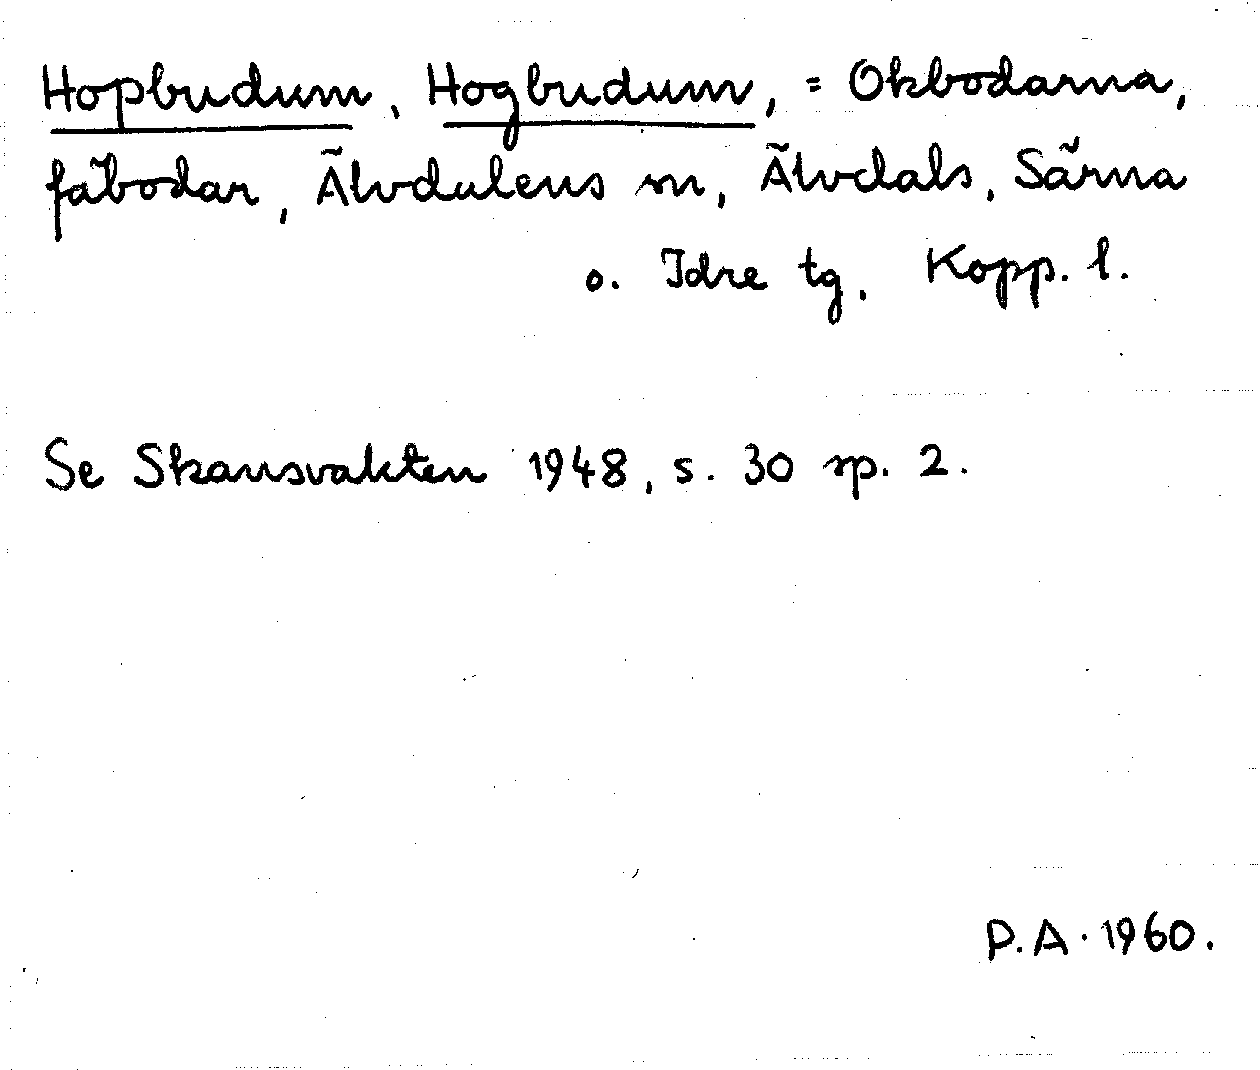 Hopbudum, Hogbudum, = Okbodarna,
fäbodar, Älvdalens sn, Älvdals, Särna
o. Idre tg, Kopp. l.
Se Skansvakten 1948, s. 30 sp. 2.
P.A. 1960.